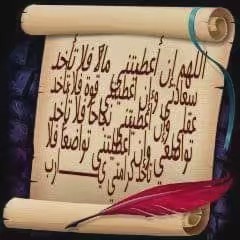 اللهم إن أعطيتني مالاً فلا تأخذ
سعادتي وإن أعطيتني قوة فلا تأخذ
عقلي وإن أعطيتني نجاحاً فلا تأخذ
تواضعي وإن أعطيتني تواضعاً فلا
تأخذ كرامتي يـــــارب